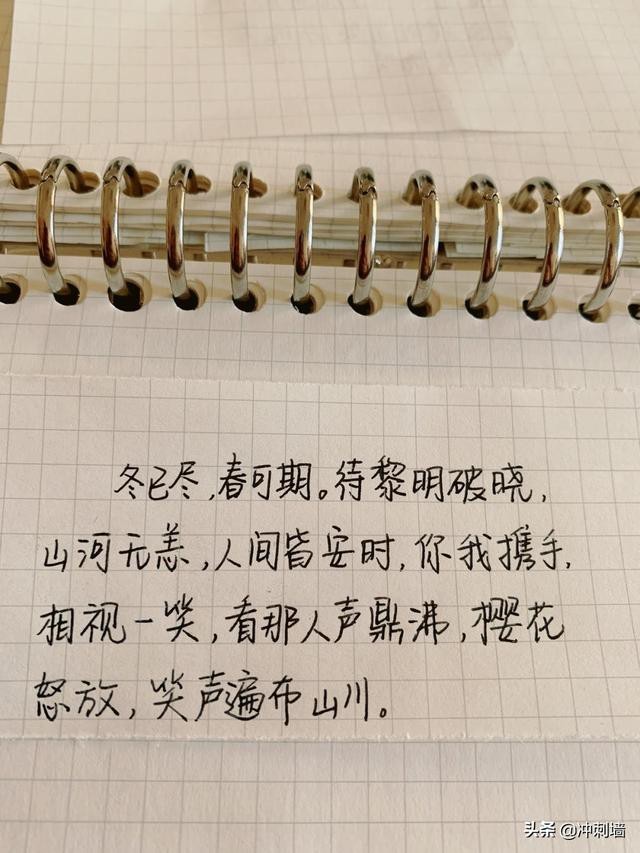 冬已尽,春可期。待黎明破晓,
山河无恙,人间皆安时,你我携手,
相视一笑,看那人声鼎沸,樱花
怒放,笑声遍布山川。
头条 @冲刺墙